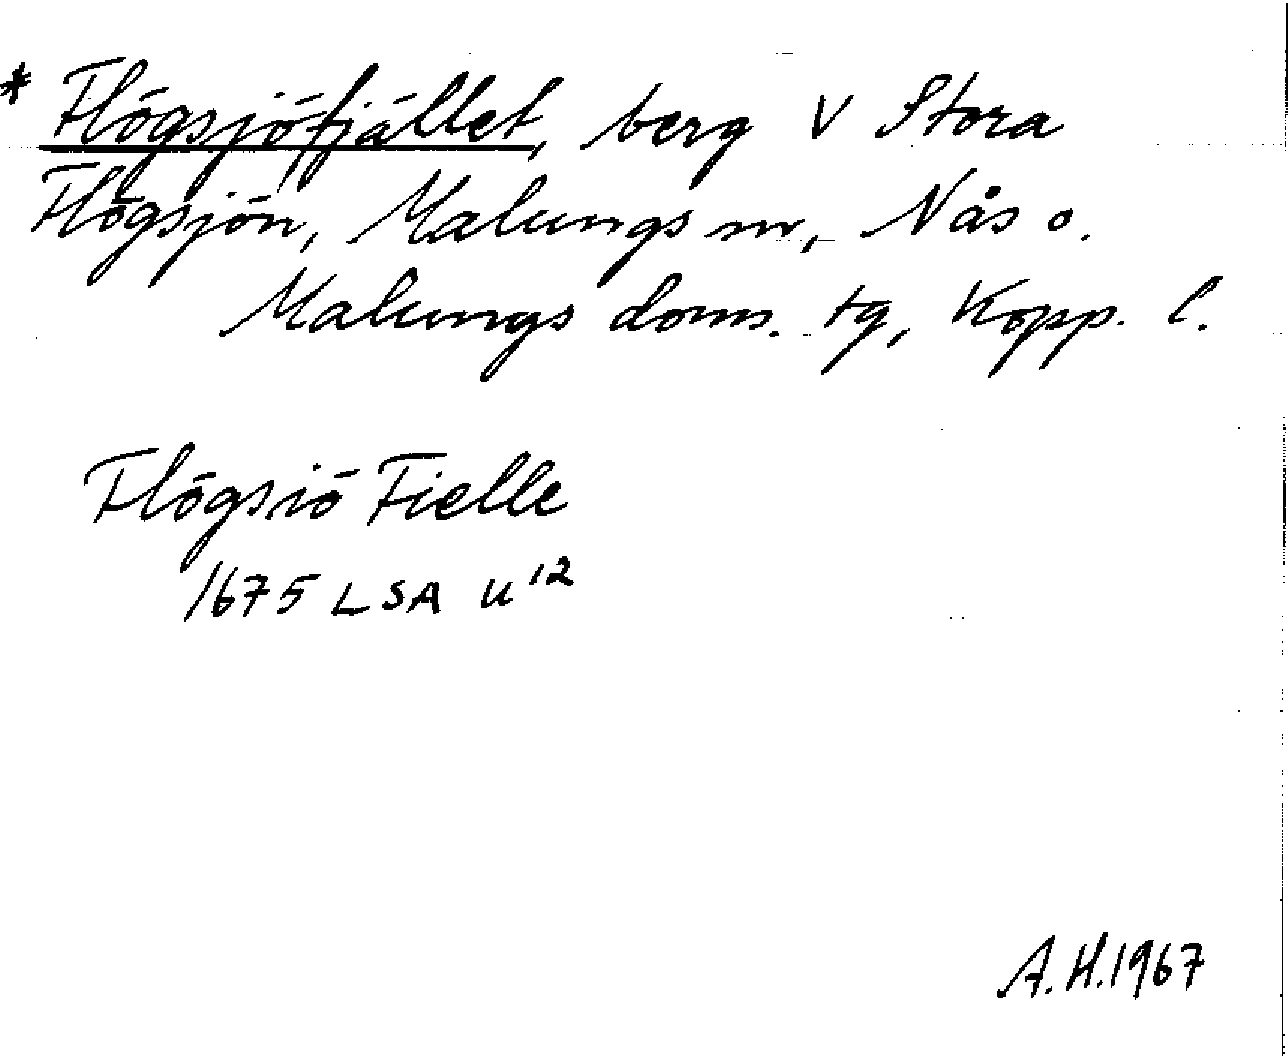 * Flögsjöfjället, berg V Stora
Flögsjön, Malungs sn, Nås o.
Malungs doms. tg, Kopp. l.
Flögsiö Fielle
1675 LSA U¹²
A.H.1967